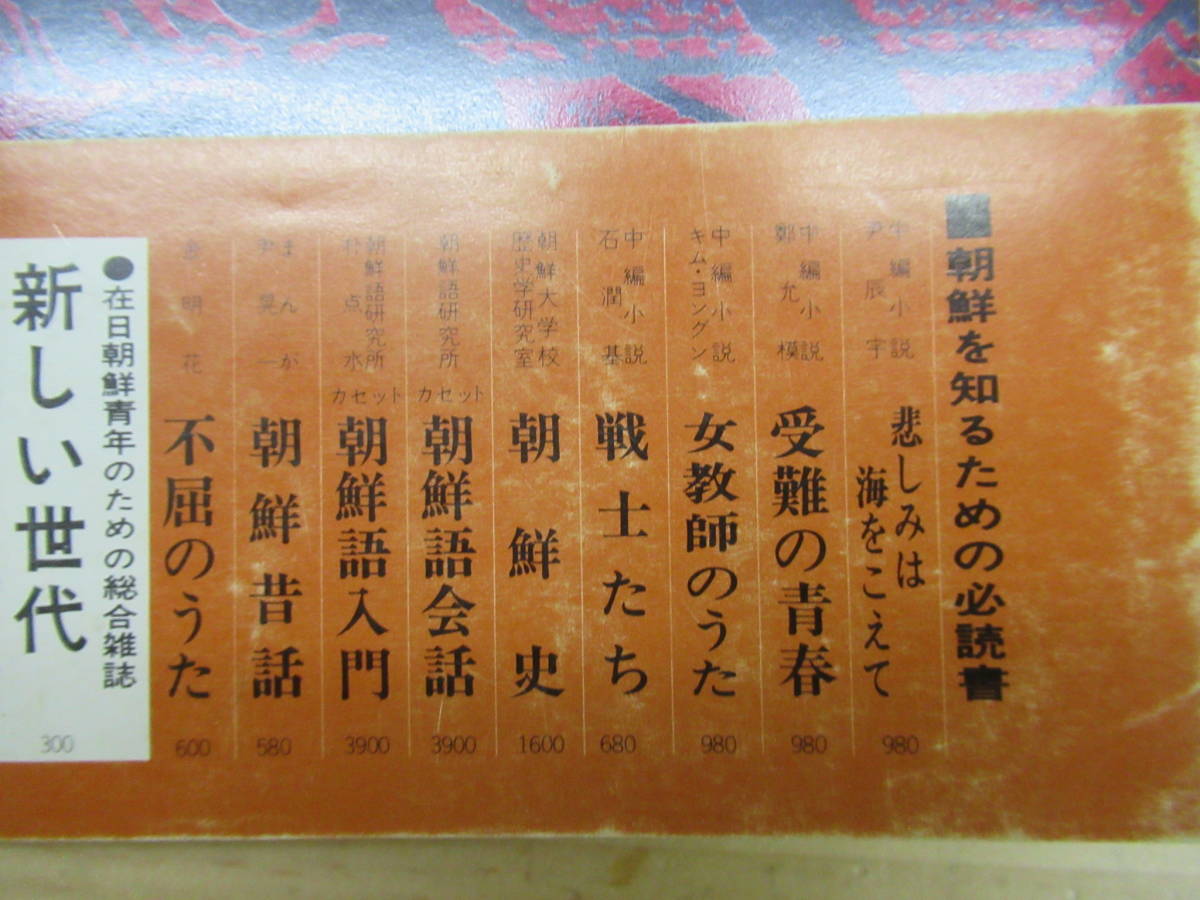 ■朝鮮を知るための必読書
中編小説
尹辰宇
悲しみは
海をこえて
980
中編小説
鄭允模
受難の青春
980
中編小説
キム・ヨングン
女教師のうた
980
中編小説
石潤基
戦士たち
680
朝鮮大学校
歴史学研究室
朝鮮史
1600
朝鮮語研究所
カセット
朝鮮語会話
3900
朝鮮語研究所
朴点水
カセット
朝鮮語入門
3900
まんが
尹晃一
朝鮮昔話
580
金明花
不屈のうた
600
●在日朝鮮青年のための総合雑誌
新しい世代
300